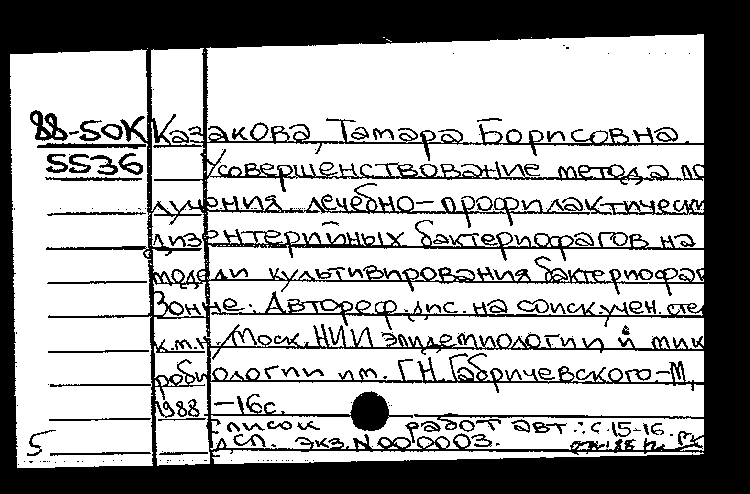 88-50К Казакова, Тамара Борисовна.
5536 Усовершенствование метода по
лучения лечебно-профилактически
дизентерийных бактериофагов на
модели культивирования бактериофаг
Зонне: Автореф. дис. на соиск. учен. сте
к.м.н. /Моск. НИИ эпидемиологии и мик
робиологии им. Г.Н. Габричевского.-М,
1988 -16с.
Список работ авт.: с. 15-16.
5 ДСП. экз. N 000003.